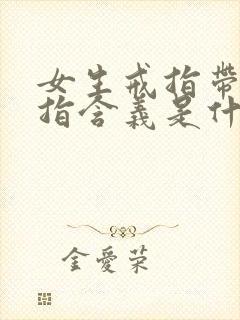 女生戒指帶
指含義是什
金愛荣